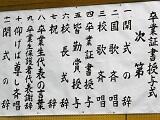 卒業証書授与式
次第
一 開式の辞
二 国歌斉唱
三 校歌斉唱
四 卒業証書授与
五 皆勤賞授与
六 校長式辞
七 祝辞
八 卒業生代表の言葉
九 卒業生保護者代表謝辞
十 仰げば尊し斉唱
十一 閉式の辞